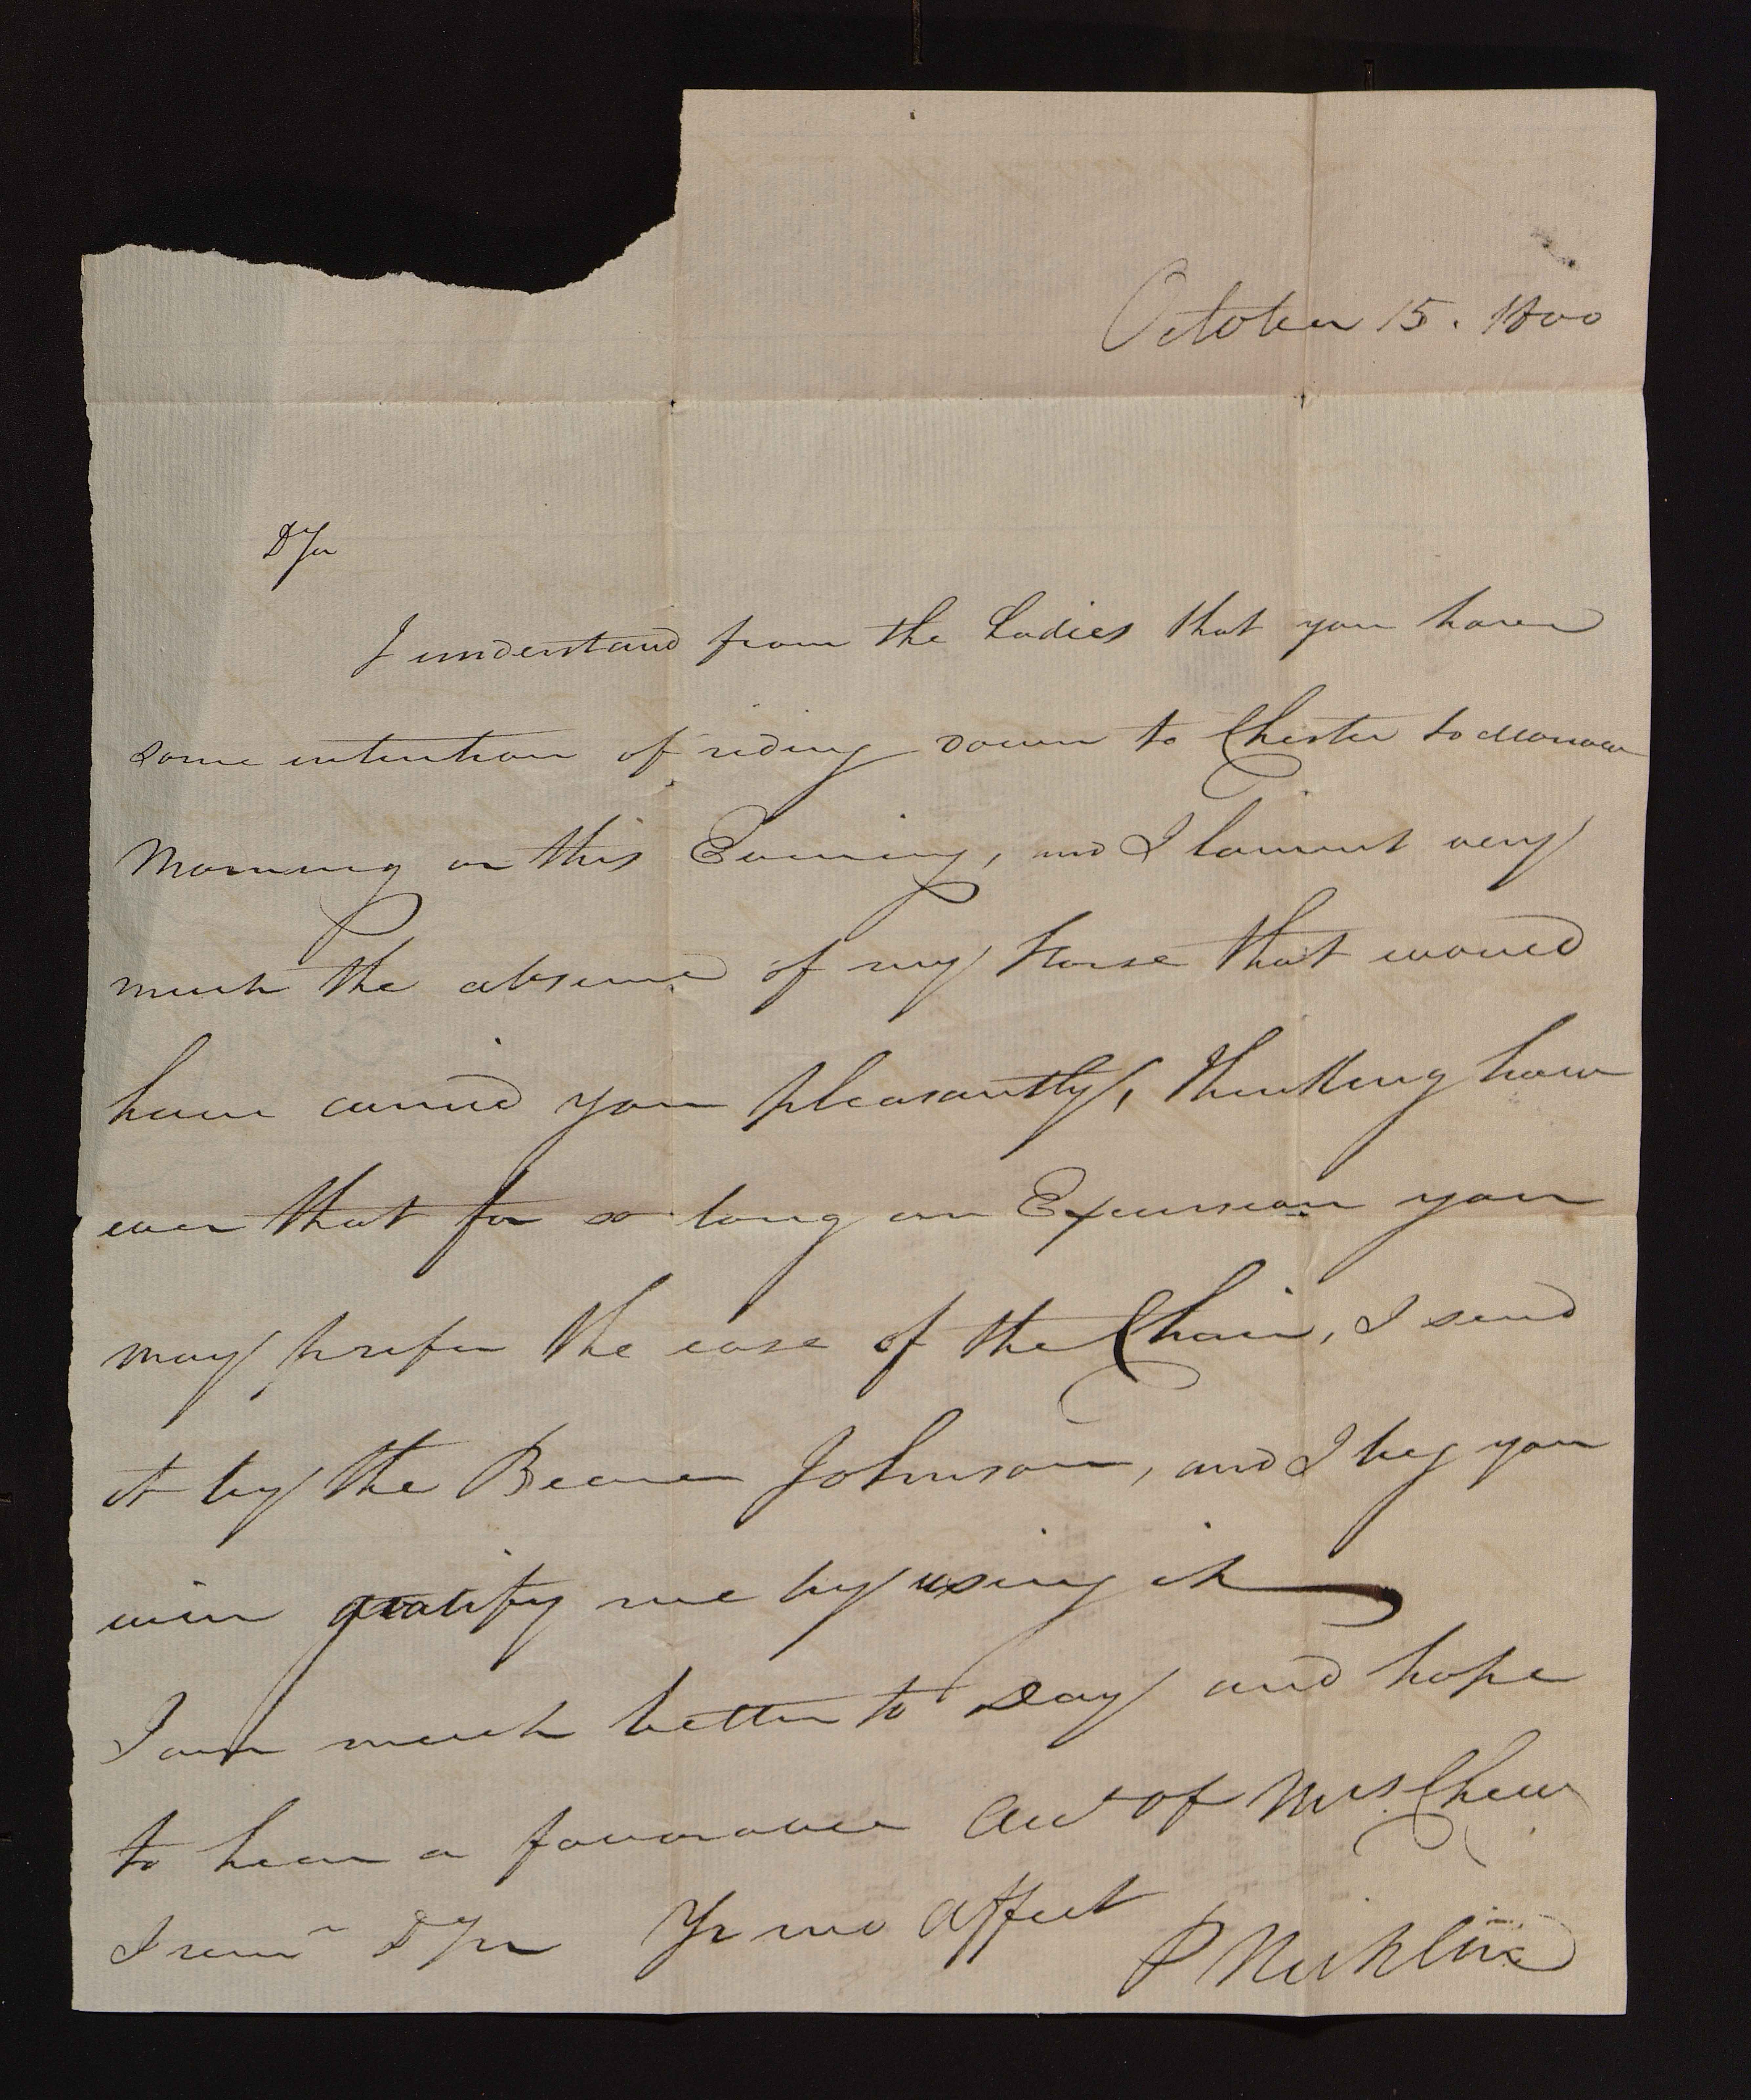 October 15. 1800
D Sir
I understand from the Ladies that you have
some intention of riding down to Chester to morrow
Morning or this Evening, and I lament very
much the absence of my Horse that would
have carried you pleasantly, thinking how
ever that for so long an Excursion you
may prefer the ease of the Chair, I send
it by the Bearer Johnson, and I beg you
will gratify me by using it
I am much better to Day and hope
to hear a favorable Acct of Mrs Chew
I remn D Sir Yr mo Affect
P Nicklin